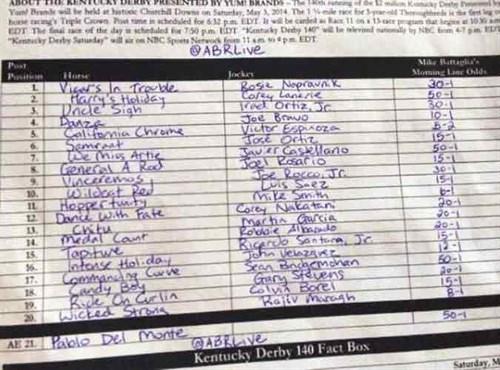 ABOUT THE KENTUCKY DERBY PRESENTED BY YUM! BRANDS – The 140th running of the $2 million Kentucky Derby Presented by
Yum! Brands will be held at historic Churchill Downs on Saturday, May 3, 2014. The 1 ¼-mile race for 3-year-old Thoroughbreds is the first leg of
horse racing's Triple Crown. Post time is scheduled for 6:32 p.m. EDT. It will be carded as Race 11 on a 13-race program that begins at 10:30 a.m.
EDT. The final race of the day is scheduled for 7:50 p.m. EDT. "Kentucky Derby 140" will be televised nationally by NBC from 4-7 p.m. EDT.
"Kentucky Derby Saturday" will air on NBC Sports Network from 11 a.m. to 4 p.m. EDT.
@ABRLive
Post Position Horse Jockey Mike Battaglia's Morning Line Odds
1. Vicar's In Trouble Rosie Napravnik 30-1
2. Harry's Holiday Corey Lanerie 50-1
3. Uncle Sigh Irad Ortiz, Jr. 30-1
4. Danza Joe Bravo 10-1
5. California Chrome Victor Espinoza 5-2
6. Samraat Jose Ortiz 15-1
7. We Miss Artie Javier Castellano 50-1
8. General A Rod Joel Rosario 15-1
9. Vinceremos Joe Rocco, Jr. 30-1
10. Wildcat Red Luis Saez 15-1
11. Hoppertunity Mike Smith 6-1
12. Dance With Fate Corey Nakatani 20-1
13. Chitu Martin Garcia 20-1
14. Medal Count Robbie Albarado 20-1
15. Tapiture Ricardo Santana, Jr. 15-1
16. Intense Holiday John Velazquez 12-1
17. Commanding Curve Sean Bridgemohan 50-1
18. Candy Boy Gary Stevens 20-1
19. Ride On Curlin Calvin Borel 15-1
20. Wicked Strong Rajiv Maragh 8-1
AE 21. Pablo Del Monte 50-1
@ABRLive
Kentucky Derby 140 Fact Box
Saturday, M